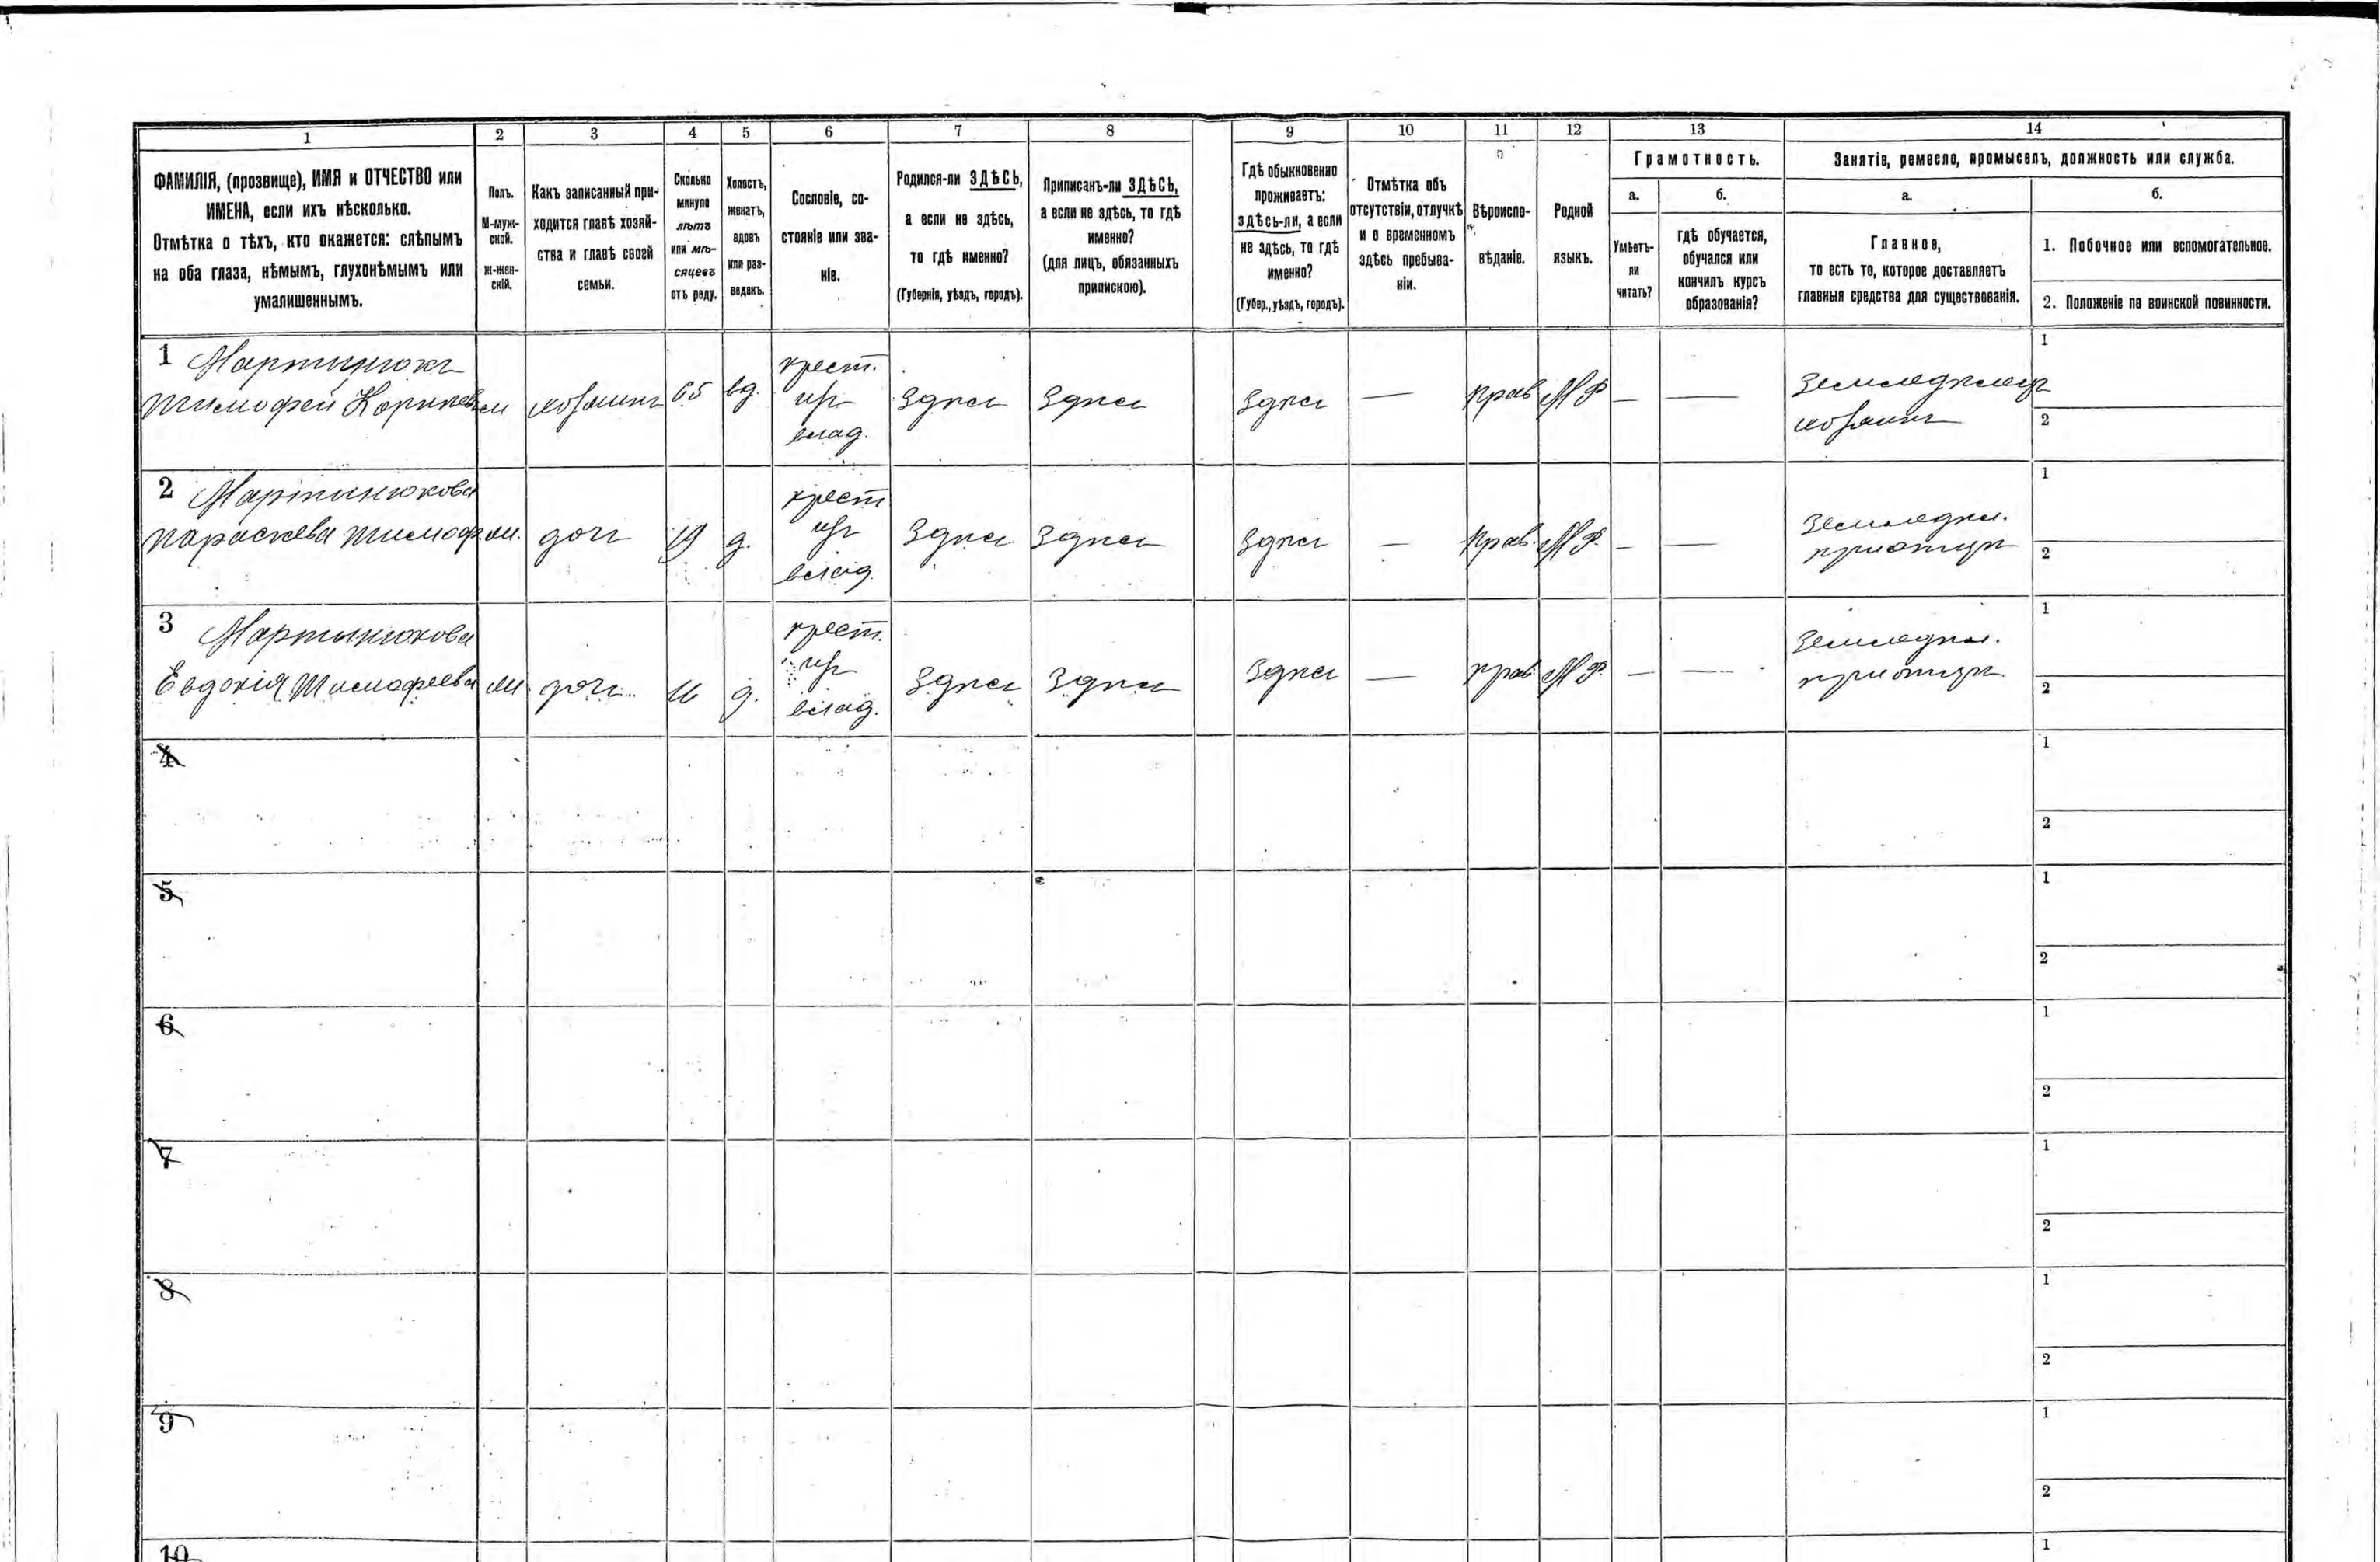 1 2 3 4 5 6 7 8 9 10 11 12 13 14
ФАМИЛІЯ, (прозвище), ИМЯ и ОТЧЕСТВО или
ИМЕНА, если ихъ нѣсколько.
Отмѣтка о тѣхъ, кто окажется: слѣпымъ
на оба глаза, нѣмымъ, глухонѣмымъ или
умалишеннымъ.
Полъ.
М-муж-
ской.
ж-жен-
скій.
Какъ записанный при-
ходится главѣ хозяй-
ства и главѣ своей
семьи.
Сколько
минуло
лѣтъ
или мѣ-
сяцевъ
отъ роду.
Холостъ,
женатъ,
вдовъ
или раз-
веденъ.
Сословіе, со-
стояніе или зва-
ніе.
Родился-ли ЗДѢСЬ,
а если не здѣсь,
то гдѣ именно?
(Губернія, уѣздъ, городъ).
Приписанъ-ли ЗДѢСЬ,
а если не здѣсь, то гдѣ
именно?
(для лицъ, обязанныхъ
припискою).
Гдѣ обыкновенно
проживаетъ:
здѣсь-ли, а если
не здѣсь, то гдѣ
именно?
(Губер., уѣздъ, городъ).
Отмѣтка объ
отсутствіи, отлучкѣ
и о временномъ
здѣсь пребыва-
ніи.
Вѣроиспо-
вѣданіе.
Родной
языкъ.
Грамотность.
а.
Умѣетъ-
ли
читать?
б.
гдѣ обучается,
обучался или
кончилъ курсъ
образованія?
Занятіе, ремесло, промыселъ, должность или служба.
а.
Главное,
то есть то, которое доставляетъ
главныя средства для существованія.
б.
1. Побочное или вспомогательное.
2. Положеніе по воинской повинности.
1 Мартынюкъ
Тимофей
м
хозяинъ
65
вд.
крест.
влад.
Здѣсь
Здѣсь
Здѣсь
—
прав
М Р
—
—
Земледѣлецъ
хозяинъ
1
2
2 Мартинюкова
Параскева Тимоф
дочь
19
д.
крест
влад.
Здѣсь
Здѣсь
Здѣсь
—
Прав.
М Р.
—
—
Земледѣл.
1
2
3 Мартынюкова
Евдокія Тимофеева
дочь
16
д.
крест.
влад.
Здѣсь
Здѣсь
Здѣсь
—
прав
М Р.
—
—
Земледѣл.
1
2
4
1
2
5
1
2
6
1
2
7
1
2
8
1
2
9
1
2
10
1